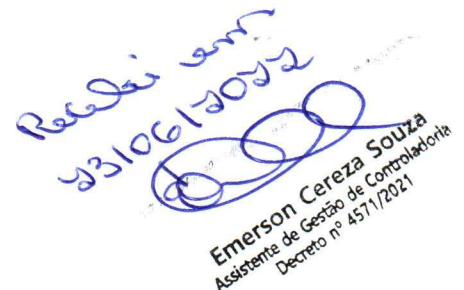 Recebi em
23/06/2022
Emerson Cereza Souza
Assistente de Gestão de Controladoria
Decreto nº 4571/2021